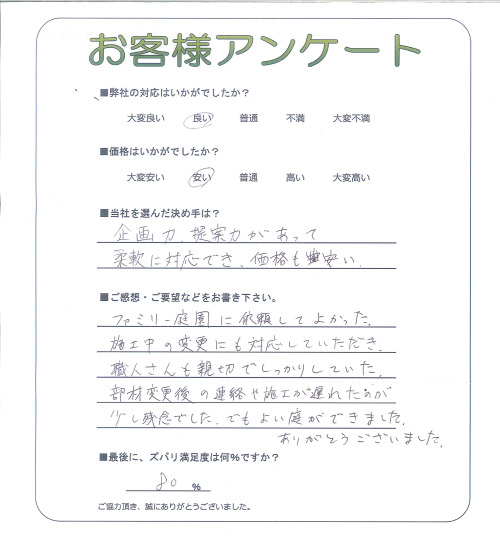 お客様アンケート
■弊社の対応はいかがでしたか？
大変良い 良い 普通 不満 大変不満
■価格はいかがでしたか？
大変安い 安い 普通 高い 大変高い
■当社を選んだ決め手は？
企画力、提案力があって
柔軟に対応でき、価格も安い。
■ご感想・ご要望などをお書き下さい。
ファミリー庭園に依頼してよかった。
施工中の変更にも対応していただき、
職人さんも親切でしっかりしていた。
部材変更後の連絡や施工が遅れたのが
少し残念でした。でもよい庭ができました。
ありがとうございました。
■最後に、ズバリ満足度は何%ですか？
80 %
ご協力頂き、誠にありがとうございました。